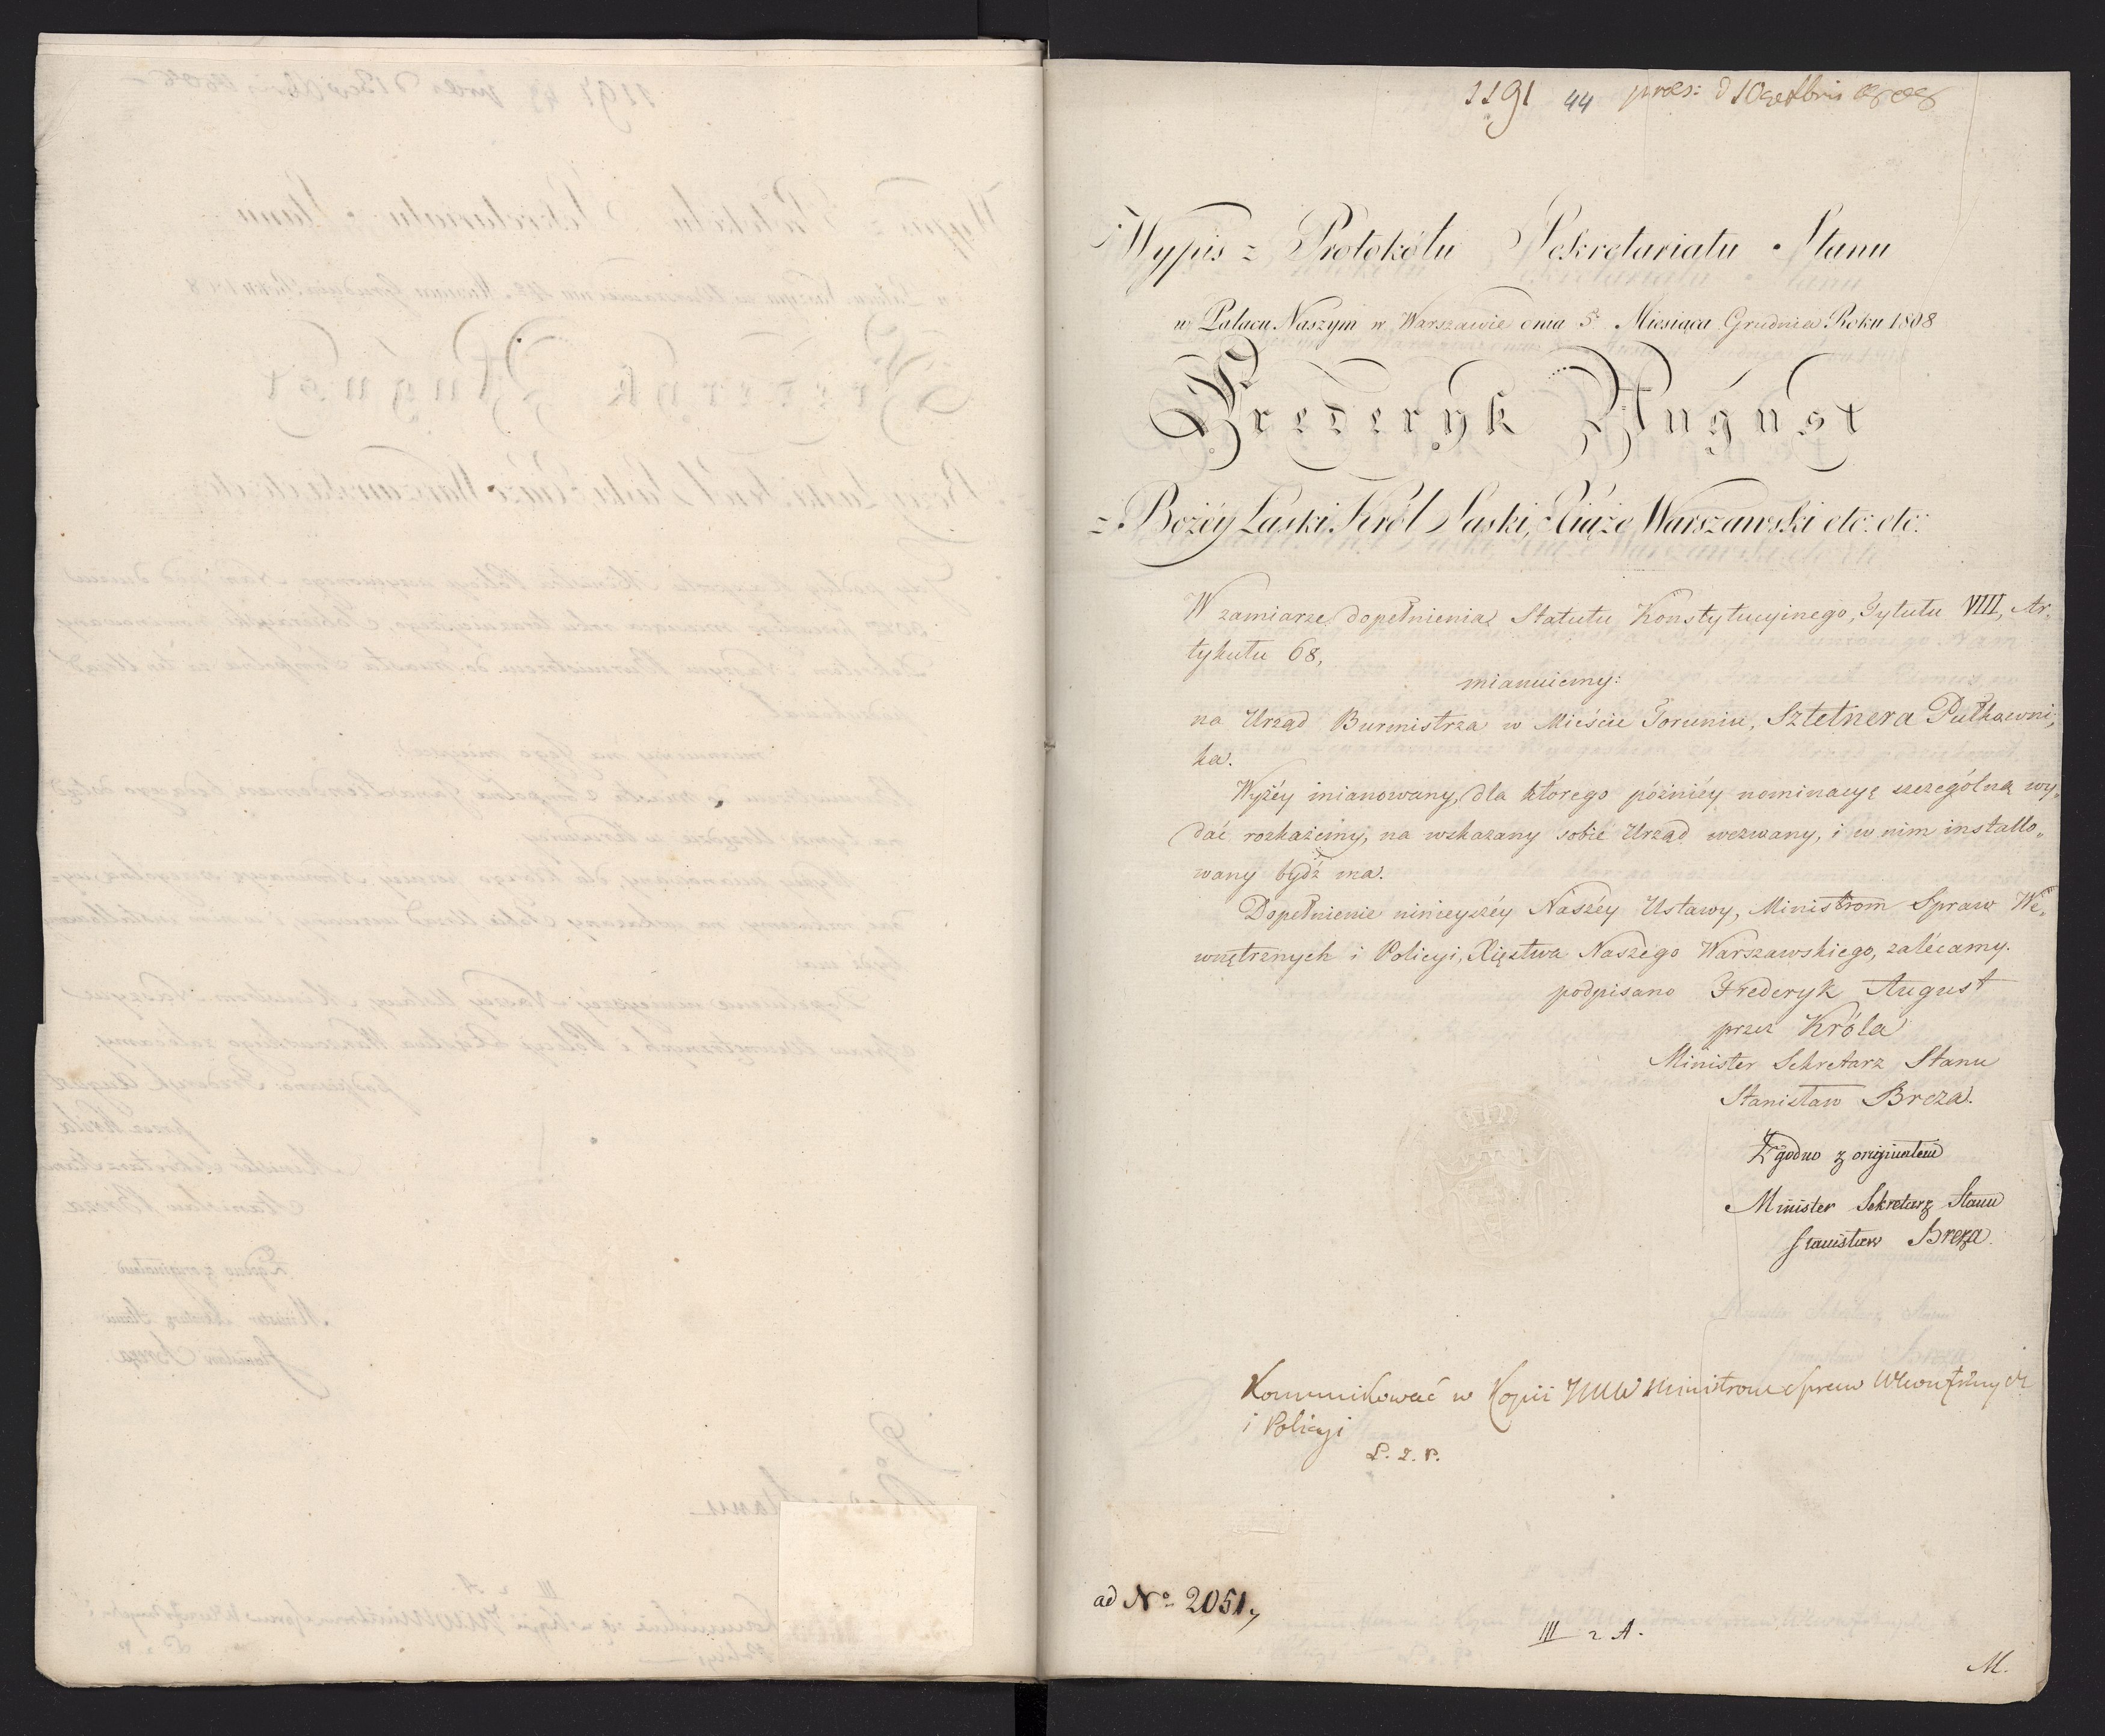 1191 44 præs: d 10 Xbris 808
Wypis z Protokółu Sekretariatu Stanu
w Pałacu Naszym w Warszawie dnia 5. Miesiąca Grudnia Roku 1808
Frederyk August
z Bożéy Łaski Król Saski, Xiąże Warszawski etc: etc:
W zamiarze dopełnienia Statutu Konstytucyinego, Tytułu VIII, Ar„
tykułu 68,
mianuiemy:
na Urząd Burmistrza w Mieście Toruniu, Sztetnera Pułkowni„
ka.
Wyżéy mianowany, dla którego póżniéy nominacyę szczególną wy„
dać rozkażemy, na wskazany sobie Urząd wezwany, i w nim installo„
wany bydź ma.
Dopełnienie ninieyszéy Naszéy Ustawy, Ministrom Spraw We„
wnętrznych i Policyi, Xięstwa Naszego Warszawskiego, zalécamy.
podpisano Frederyk August
przez Króla
Minister Sekretarz Stanu
Stanisław Breza.
Zgodno z originałem
Minister Sekretarz Stanu
Stanisław Breza.
Kommunikować w Kopii JWW Ministrom Spraw Wewnętrznych
i Policyi
ad No 2051,
III 2 A.
M.